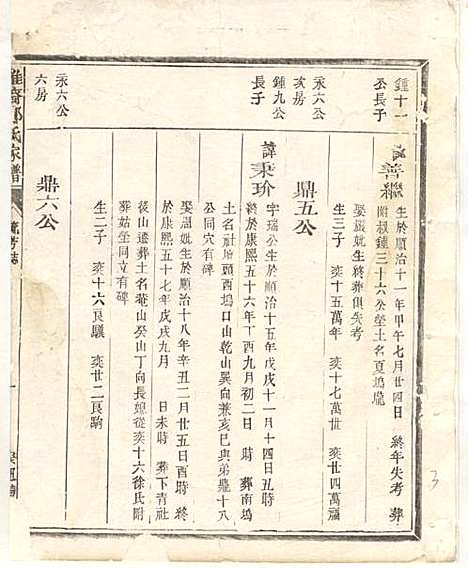 鍾十一
公長子
善繼
生於順治十一年甲午七月廿四日 終年失考 葬
附叔鍾三十六公塋土名夏塢隴
娶 氏生終葬俱失考
生三子 奕十五萬年 奕十七萬世 奕廿四萬福
汞六公
亥房
鼎五公
鍾九公
長子
諱秉玠
字瑞公生於順治十五年戊戌十一月十四日丑時
於康熙五十六年丁酉九月初二日 時 葬南塢
土名社培頭酉塢口山乾山巽向兼亥巳與弟鼎十八
公同穴有碑
娶 氏生於順治十八年辛丑二月廿五日酉時 終
於康熙五十七年戊戌九月 日未時 葬下青社
後山遷葬土名菴山癸山丁向長媳從奕十六徐氏附
葬姑塋同立有碑
生二子 奕十六良驥 奕廿二良駒
汞六公
六房
鼎六公
氏家譜
3